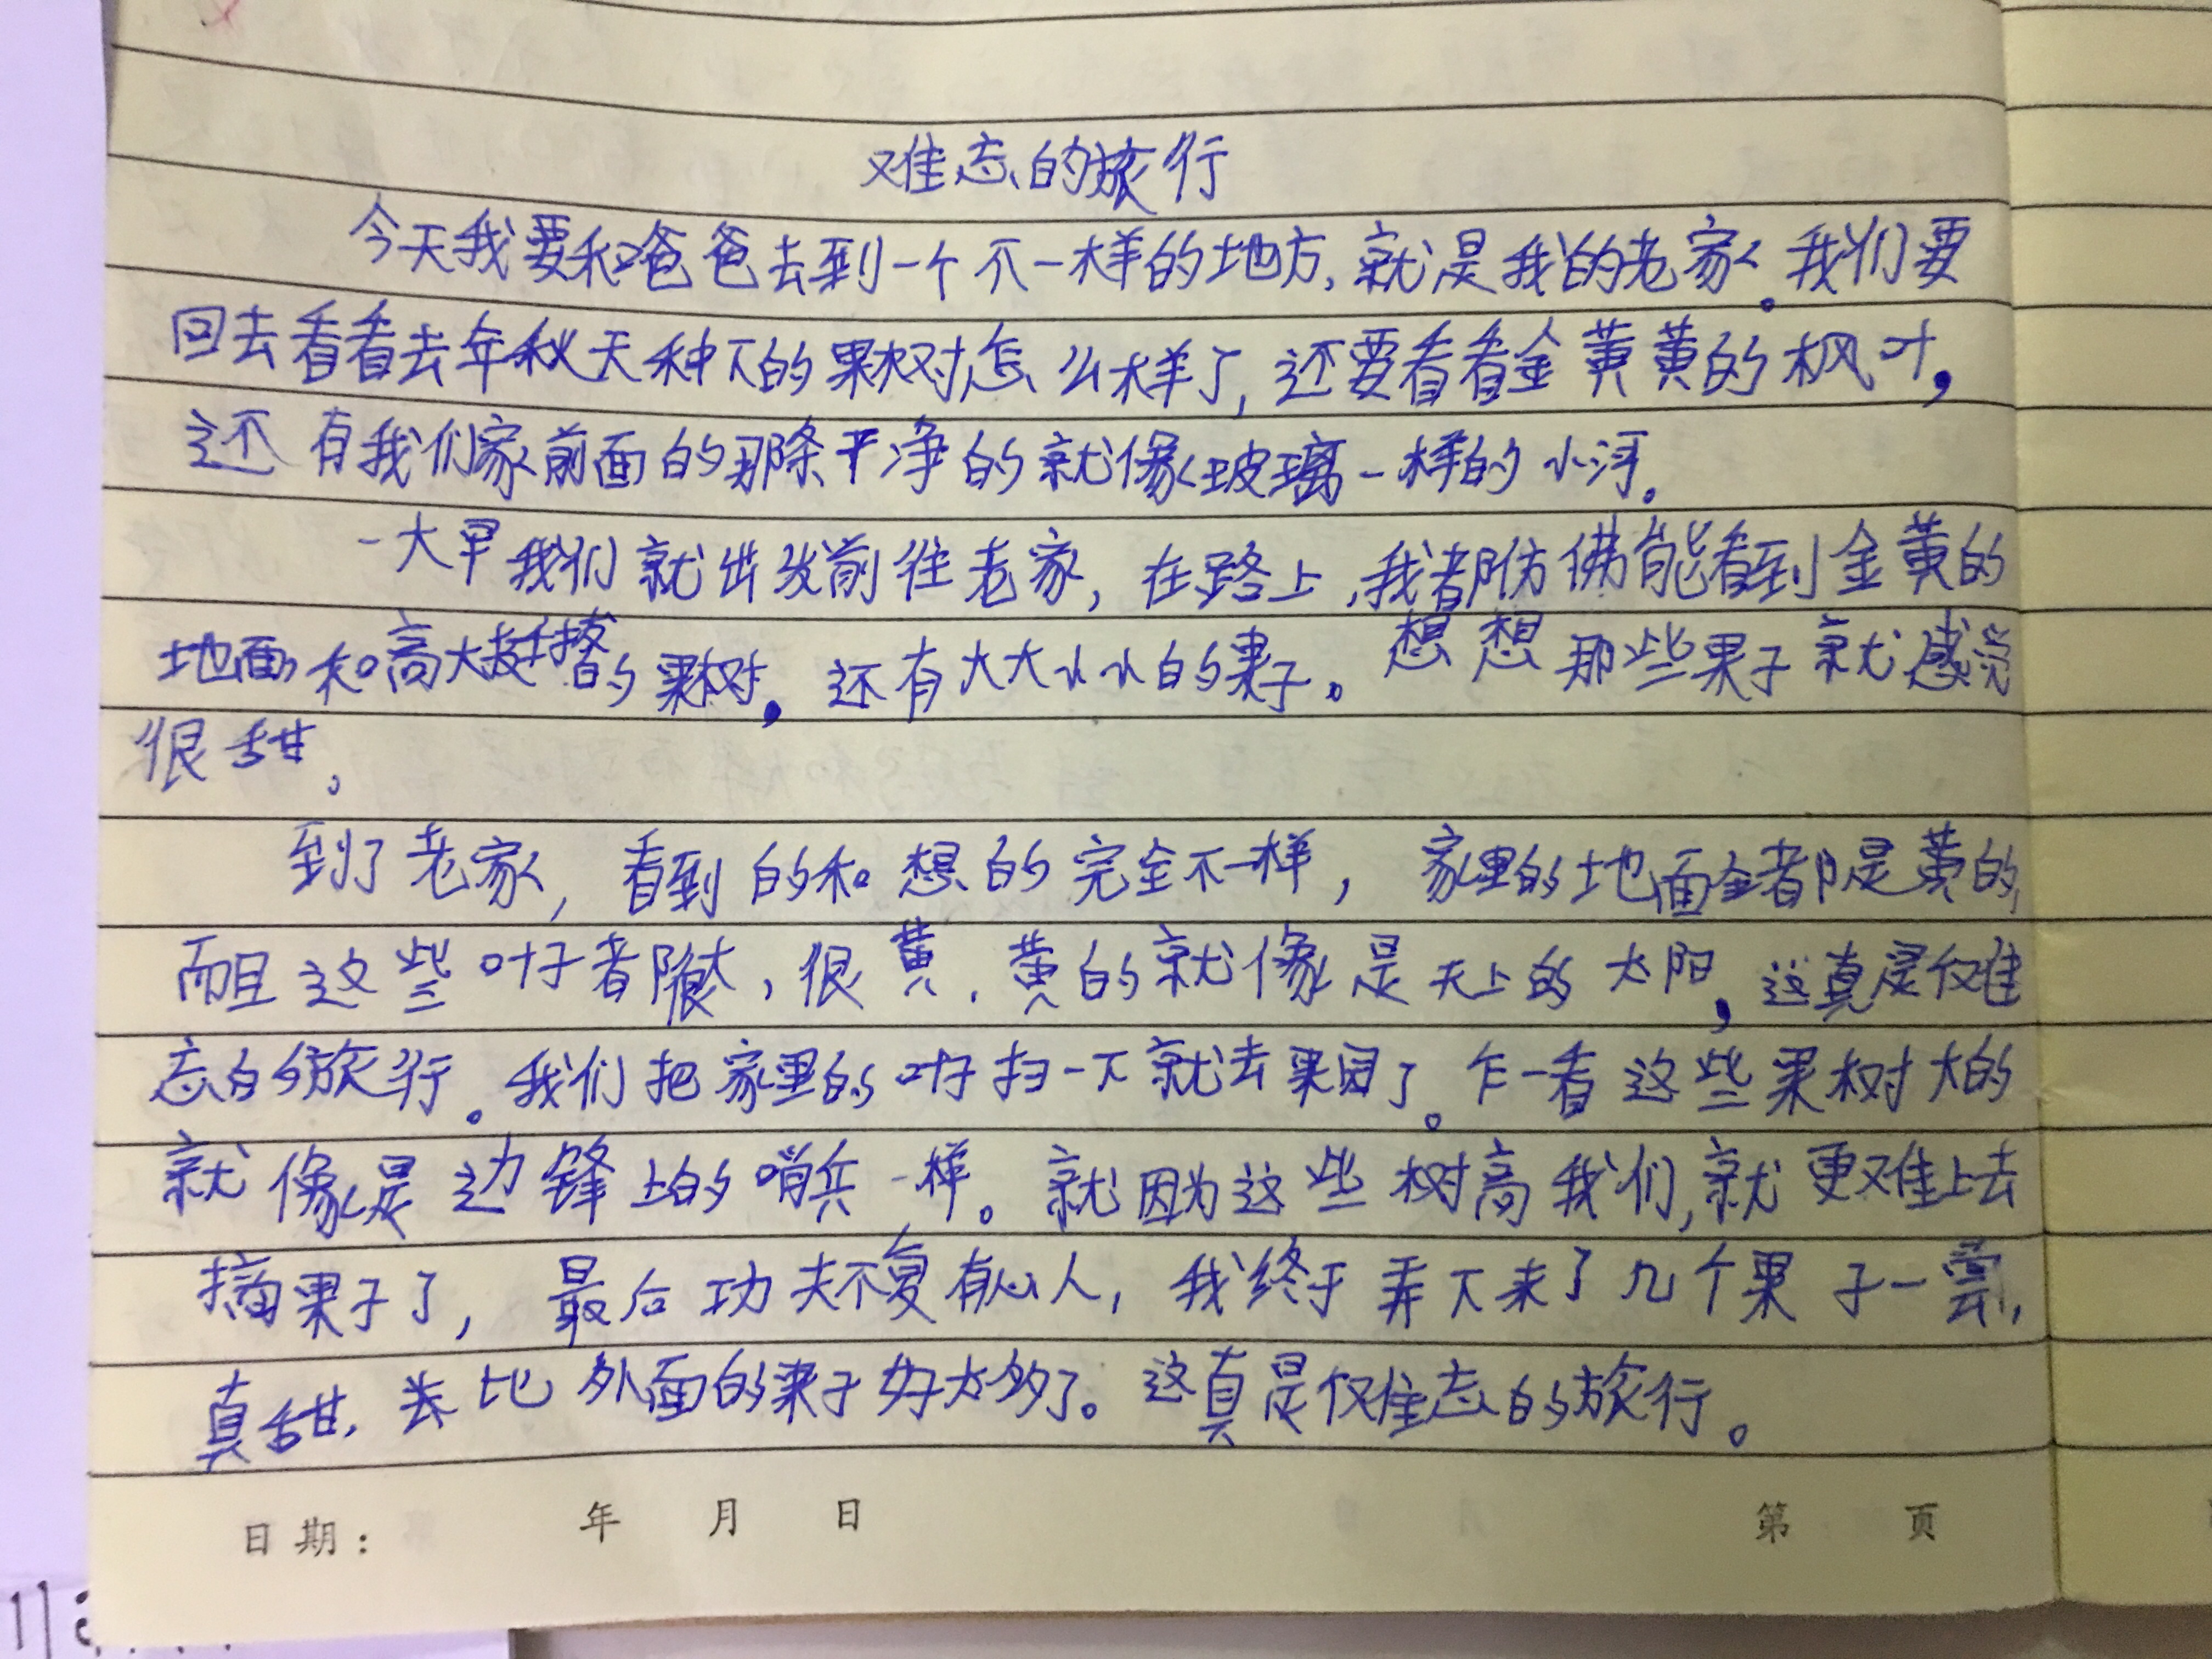 难忘的旅行
今天我要和爸爸去到一个不一样的地方,就是我的老家。我们要
回去看看去年秋天种下的果树怎么样了,还要看看金黄黄的枫叶,
还有我们家前面的那条干净的就像玻璃一样的小河。
一大早我们就出发前往老家,在路上,我都仿佛能看到金黄的
地面和高大挺拔的果树,还有大大小小的果子。想想那些果子就感觉
很甜。
到了老家,看到的和想的完全不一样,家里的地面全都是黄的,
而且这些叶子都很大,很黄,黄的就像是天上的太阳,这真是仅难
忘的旅行。我们把家里的叶子扫一下就去果园了。乍一看这些果树大的
就像是边锋上的哨兵一样。就因为这些树高我们,就更难上去
摘果子了,最后功夫不复有心人,我终于弄下来了几个果子一尝,
真甜,比外面的果子好太多了。这真是仅难忘的旅行。
日期: 年 月 日 第 页